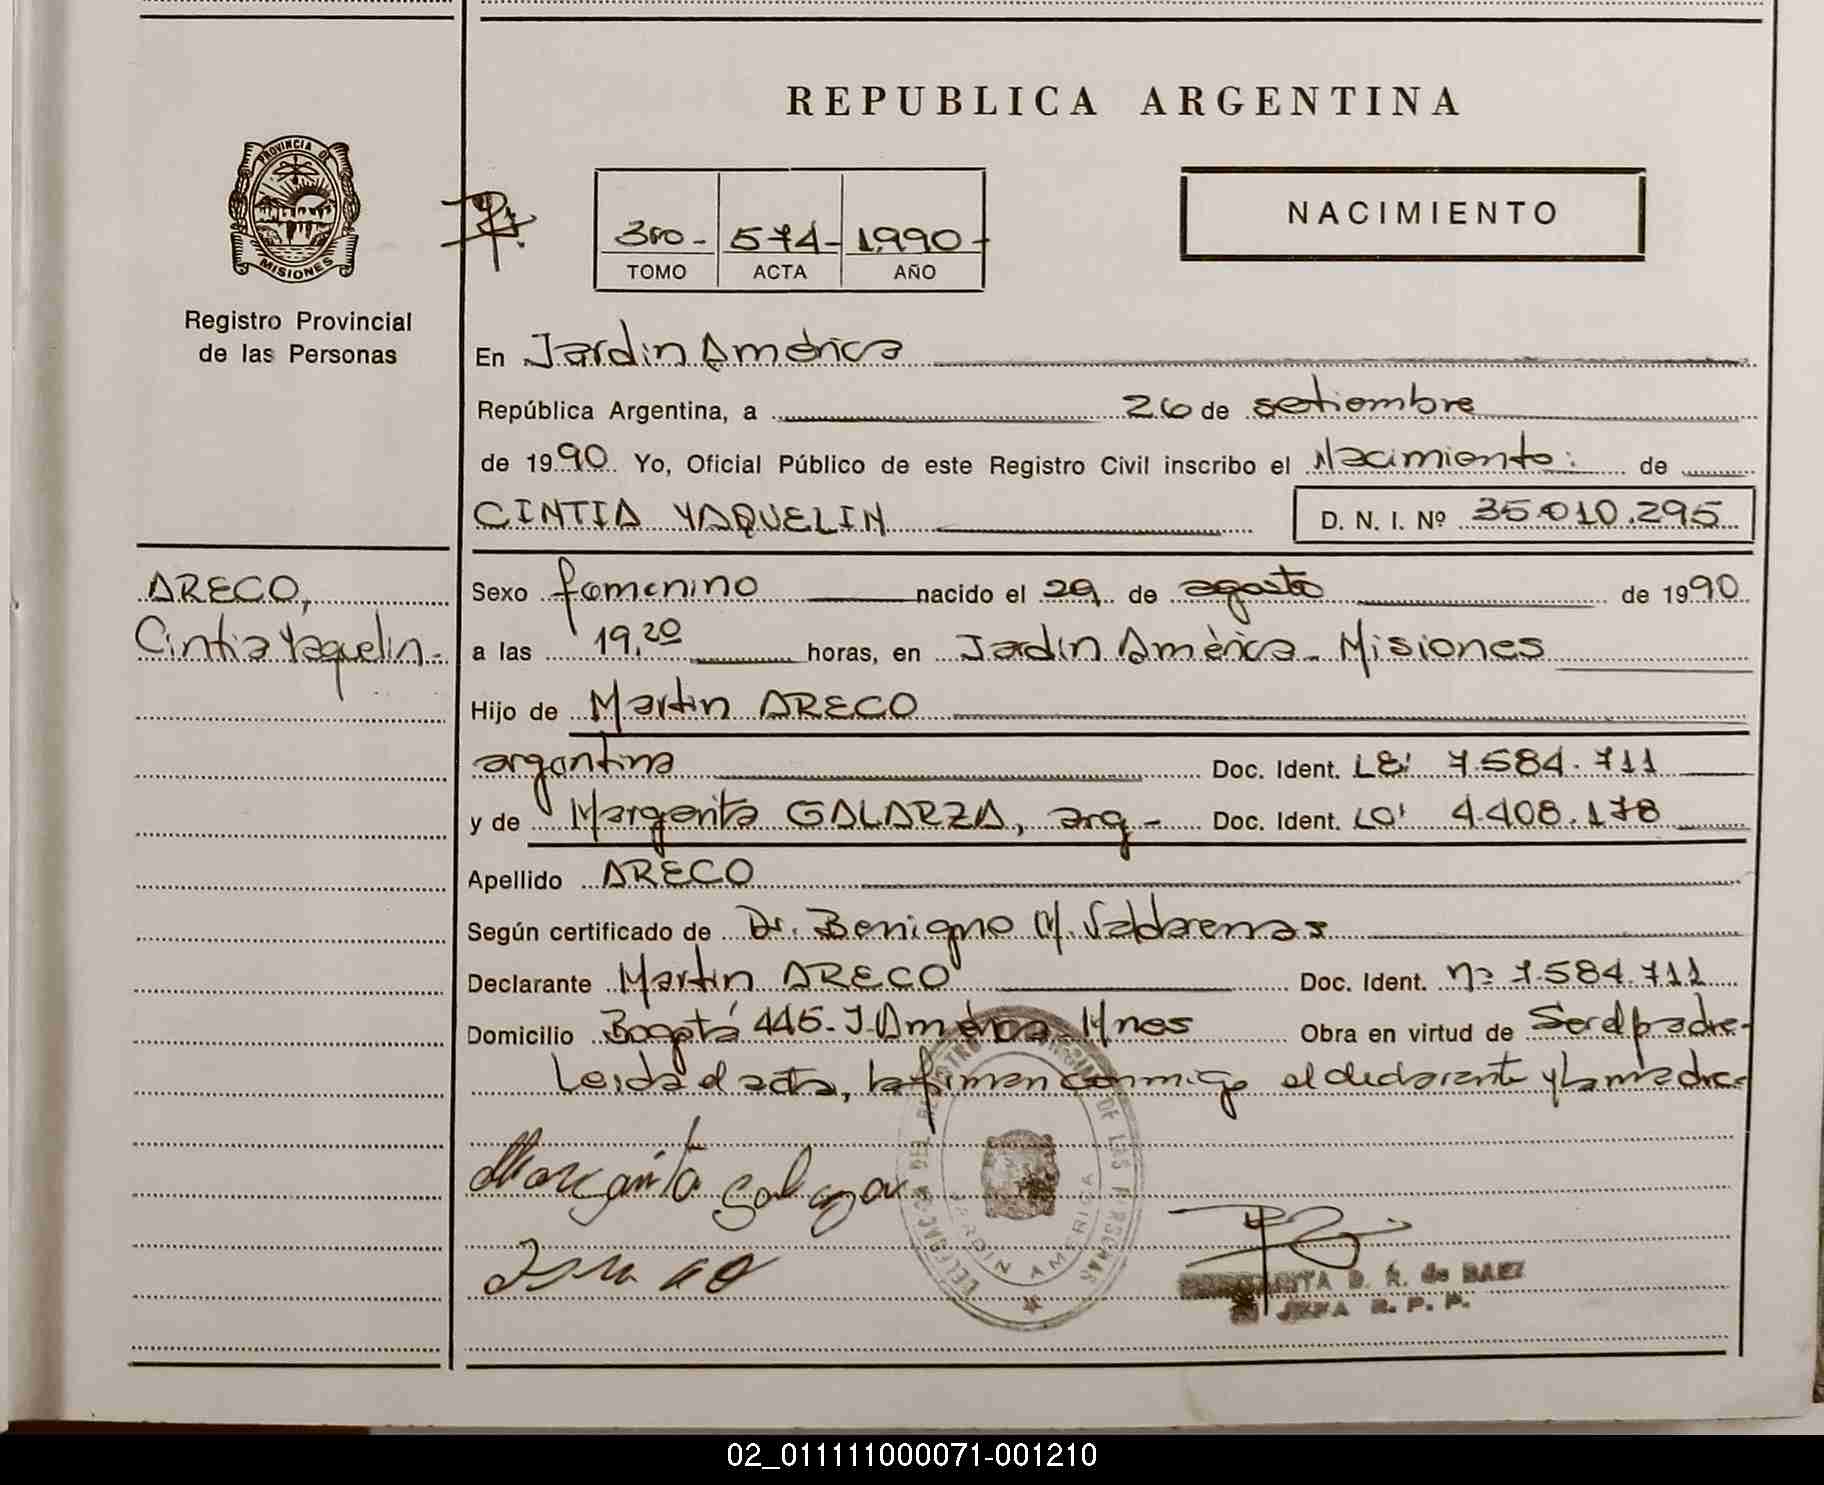 REPUBLICA ARGENTINA
PROVINCIA DE
MISIONES
Registro Provincial
de las Personas
NACIMIENTO
3ro- 574- 1990-
TOMO ACTA AÑO
En Jardin América
República Argentina, a 26 de setiembre
de 1990 Yo, Oficial Público de este Registro Civil inscribo el Nacimiento: de
CINTIA YAQUELIN D. N. I. Nº 35.010.295
ARECO,
Cintia Yaquelin.-
Sexo femenino nacido el 29 de agosto de 1990
a las 19,20 horas, en Jardin América - Misiones
Hijo de Martin ARECO
argentina Doc. Ident. LE: 7.584.711
y de Margarita GALARZA, arg- Doc. Ident. LC: 4.408.178
Apellido ARECO
Según certificado de Dr. Benigno M.
Declarante Martin ARECO Doc. Ident. nº 7.584.711
Domicilio Bogotá 445- J. América- Mnes Obra en virtud de Ser el padre-
Leida el acta, la firman conmigo el declarante y la madre-
Margarita
JARDIN AMERICA
DE LAS PERSONAS
D. R. de BAEZ
JEFA R. P. P.
02_011111000071-001210